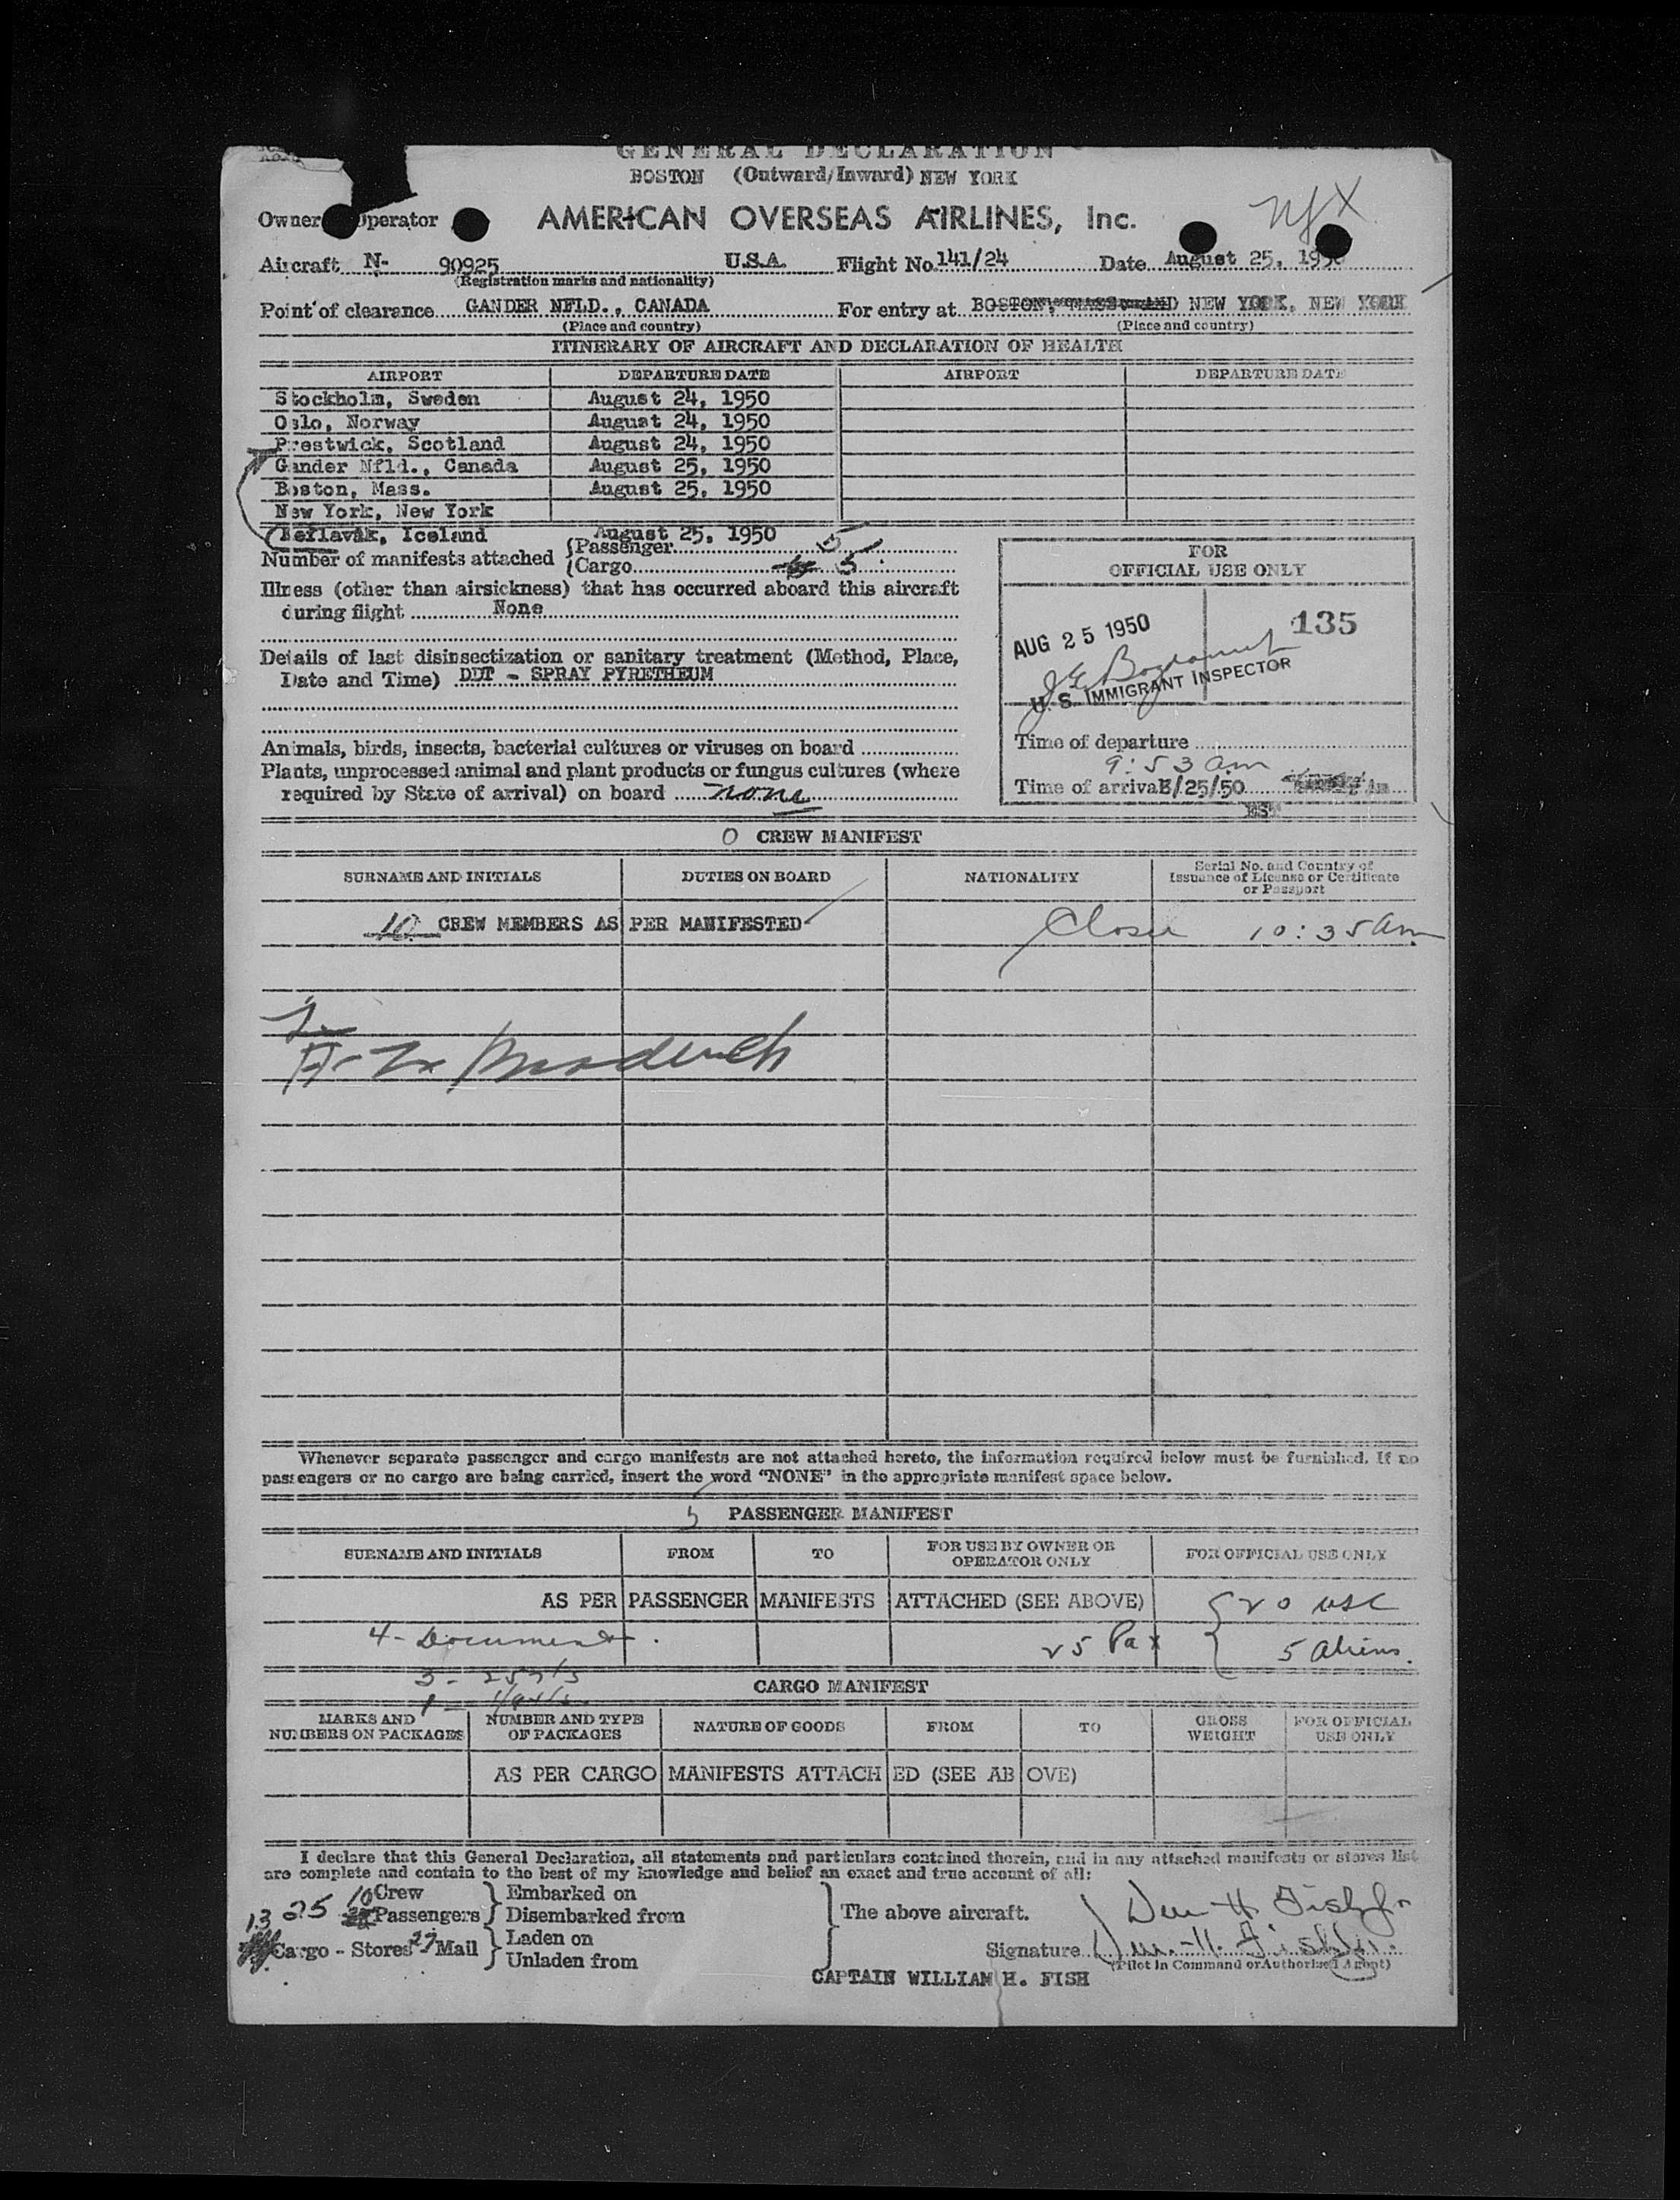 GENERAL DECLARATION
BOSTON (Outward/Inward) NEW YORK
Owner Operator AMERICAN OVERSEAS AIRLINES, Inc.
Aircraft N- 90925 U.S.A. Flight No. 141/24 Date August 25, 1950
(Registration marks and nationality)
Point of clearance GANDER NFLD., CANADA For entry at BOSTON, MASS AND NEW YORK, NEW YORK
(Place and country) (Place and country)
ITINERARY OF AIRCRAFT AND DECLARATION OF HEALTH
AIRPORT DEPARTURE DATE AIRPORT DEPARTURE DATE
Stockholm, Sweden August 24, 1950
Oslo, Norway August 24, 1950
Prestwick, Scotland August 24, 1950
Gander Nfld., Canada August 25, 1950
Boston, Mass. August 25, 1950
New York, New York
Keflavik, Iceland August 25, 1950
Number of manifests attached
Passenger 5
Cargo 5
FOR
OFFICIAL USE ONLY
Illness (other than airsickness) that has occurred aboard this aircraft
during flight None
AUG 25 1950 135
U. S. IMMIGRANT INSPECTOR
Details of last disinsectization or sanitary treatment (Method, Place,
Date and Time) DDT - SPRAY PYRETHEUM
Animals, birds, insects, bacterial cultures or viruses on board
Plants, unprocessed animal and plant products or fungus cultures (where
required by State of arrival) on board none
Time of departure
9:53 am
Time of arrival 8/25/50
EST
0 CREW MANIFEST
SURNAME AND INITIALS DUTIES ON BOARD NATIONALITY Serial No. and Country of
Issuance of License or Certificate
or Passport
10 CREW MEMBERS AS PER MANIFESTED
10:35 am
Whenever separate passenger and cargo manifests are not attached hereto, the information required below must be furnished. If no
passengers or no cargo are being carried, insert the word "NONE" in the appropriate manifest space below.
5 PASSENGER MANIFEST
SURNAME AND INITIALS FROM TO FOR USE BY OWNER OR
OPERATOR ONLY FOR OFFICIAL USE ONLY
AS PER PASSENGER MANIFESTS ATTACHED (SEE ABOVE) 20 USC
4 - Documents. 25 Pax 5 Aliens.
CARGO MANIFEST
MARKS AND
NUMBERS ON PACKAGES NUMBER AND TYPE
OF PACKAGES NATURE OF GOODS FROM TO GROSS
WEIGHT FOR OFFICIAL
USE ONLY
AS PER CARGO MANIFESTS ATTACHED (SEE ABOVE)
I declare that this General Declaration, all statements and particulars contained therein, and in any attached manifests or stores list
are complete and contain to the best of my knowledge and belief an exact and true account of all:
10 Crew Embarked on
25 Passengers Disembarked from The above aircraft. Wm H. Fish Jr
13 Cargo - Stores 27 Mail Laden on
Unladen from
Signature Wm. H. Fish Jr.
(Pilot in Command or Authorized Agent)
CAPTAIN WILLIAM H. FISH